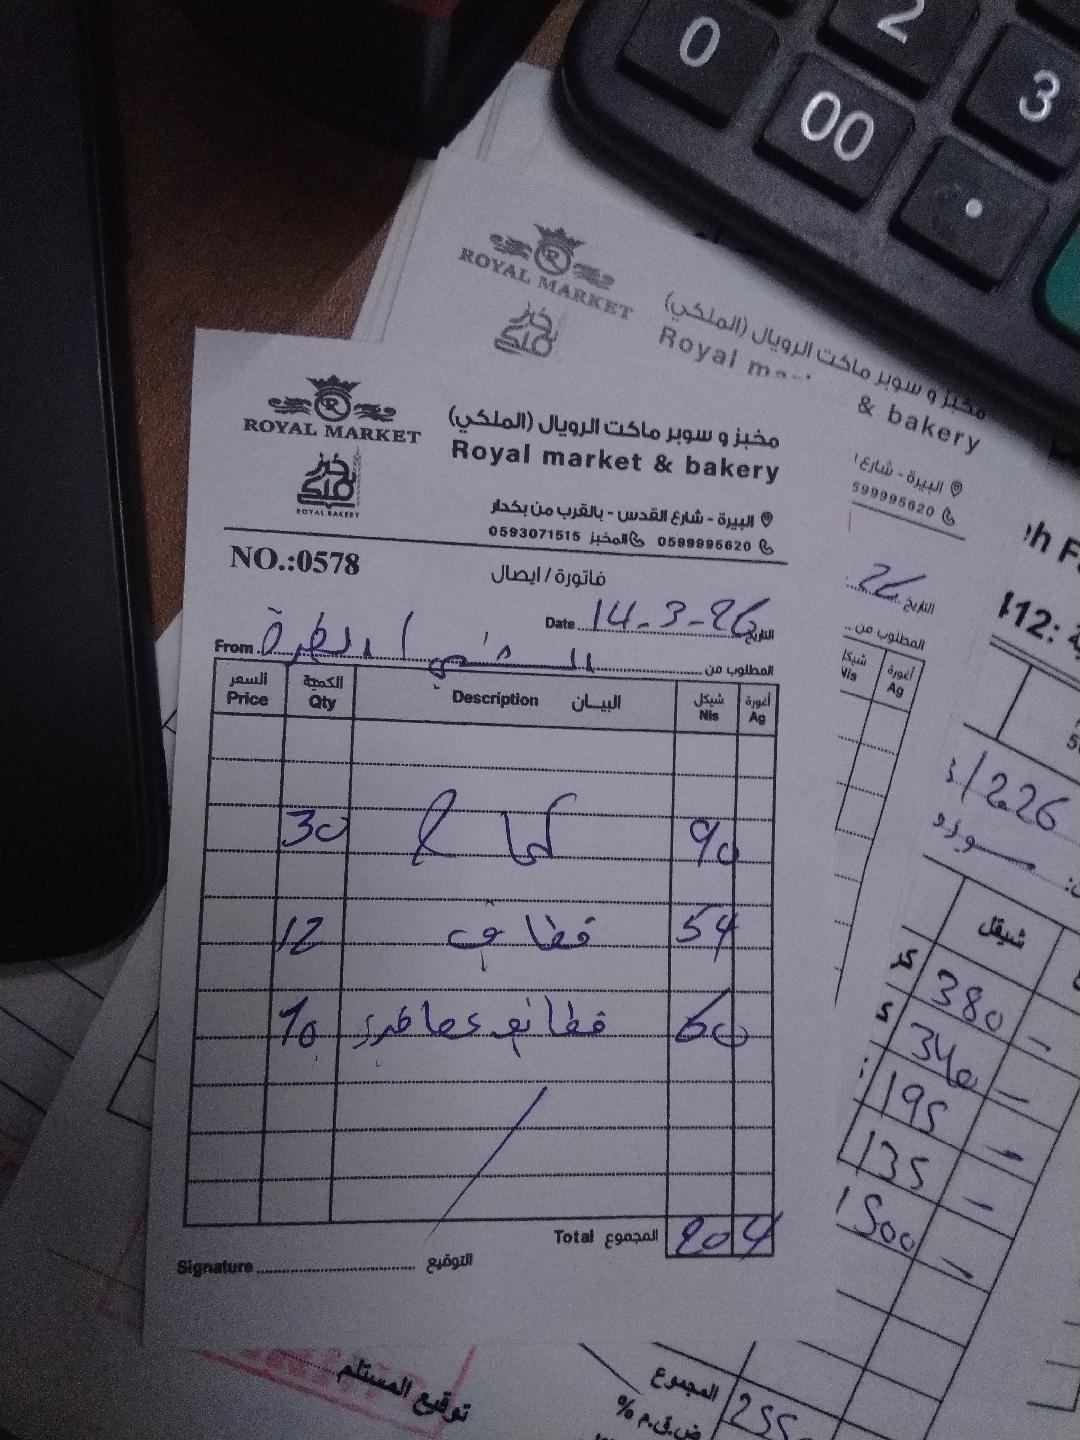 0
2
3
00
.
ROYAL MARKET
خبز ملكي
مخبز و سوبر ماكت الرويال (الملكي)
Royal ma
& bakery
البيرة - شارع ا
599995620
التاريخ
المطلوب من
شيكل
Nis
أغورة
Ag
ROYAL MARKET
خبز ملكي
ROYAL BAKERY
مخبز و سوبر ماكت الرويال (الملكي)
Royal market & bakery
البيرة - شارع القدس - بالقرب من بكدار
0599995620 المخبز 0593071515
NO.:0578
فاتورة / ايصال
Date 14-3-26 التاريخ
From المطلوب من
السعر Price
الكمية Qty
Description البيــان
شيكل Nis
أغورة Ag
30 كماج 90
12 قطايف 54
10 قطايف عصافير 60
Total المجموع 204
Signature التوقيع
h F
112:
3/226
شيقل
380 -
340 -
195 -
135 -
1500 -
المجموع
255
ض.ق.م %
توقيع المستلم